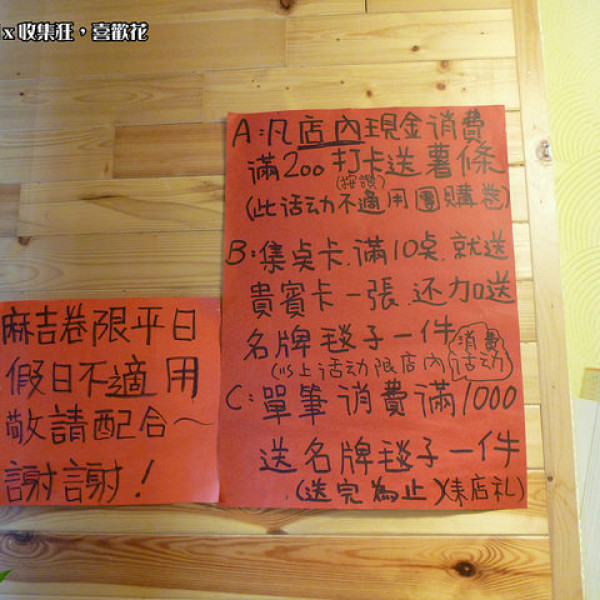 x 收集狂，喜歡花
A:凡店內現金消費
滿200打卡送薯條
(按讚)
(此活动不適用團購卷)
B:集桌卡.滿10桌.就送
貴賓卡一張.还加送
名牌毯子一件
(以上活动限店內消費活动)
C:單筆消費滿1000
送名牌毯子一件
(送完為止)(來店礼)
麻吉卷限平日
假日不適用
敬請配合~
謝謝!